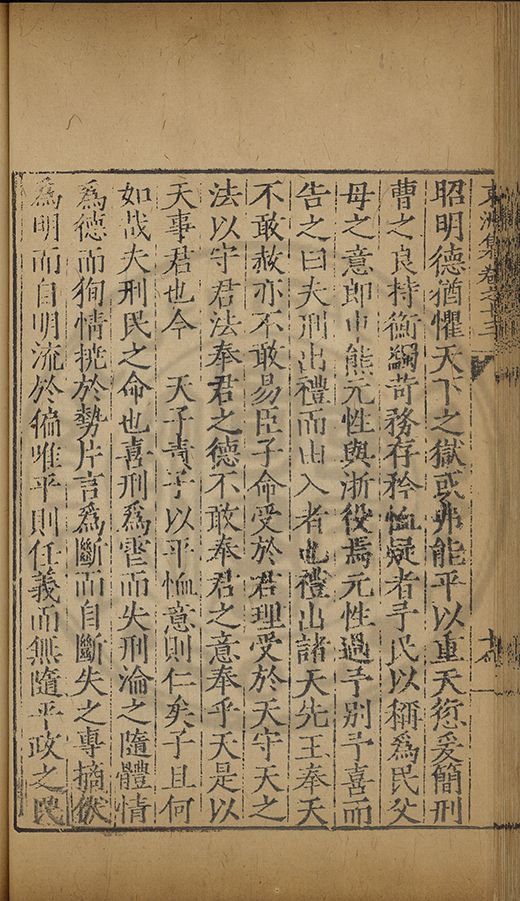 東洲集卷之十三
昭明德猶懼天下之獄或弗能平以重天愆爰簡刑
曹之良持衡蠲苛務存矜恤疑者予民以稱爲民父
母之意即山熊元性與浙役焉元性過予别予喜而
告之曰夫刑出禮而由入者也禮出諸天先王奉天
不敢赦亦不敢易臣子命受於君理受於天守天之
法以守君法奉君之德不敢奉君之意奉乎天是以
天事君也今 天子責子以平恤意則仁矣子且何
如哉夫刑民之命也喜刑爲霍而失刑淪之隨體情
爲德而狥情撓於勢片言爲斷而自斷失之專摘伏
爲明而自明流於徧唯平則任義而無隨平政之民